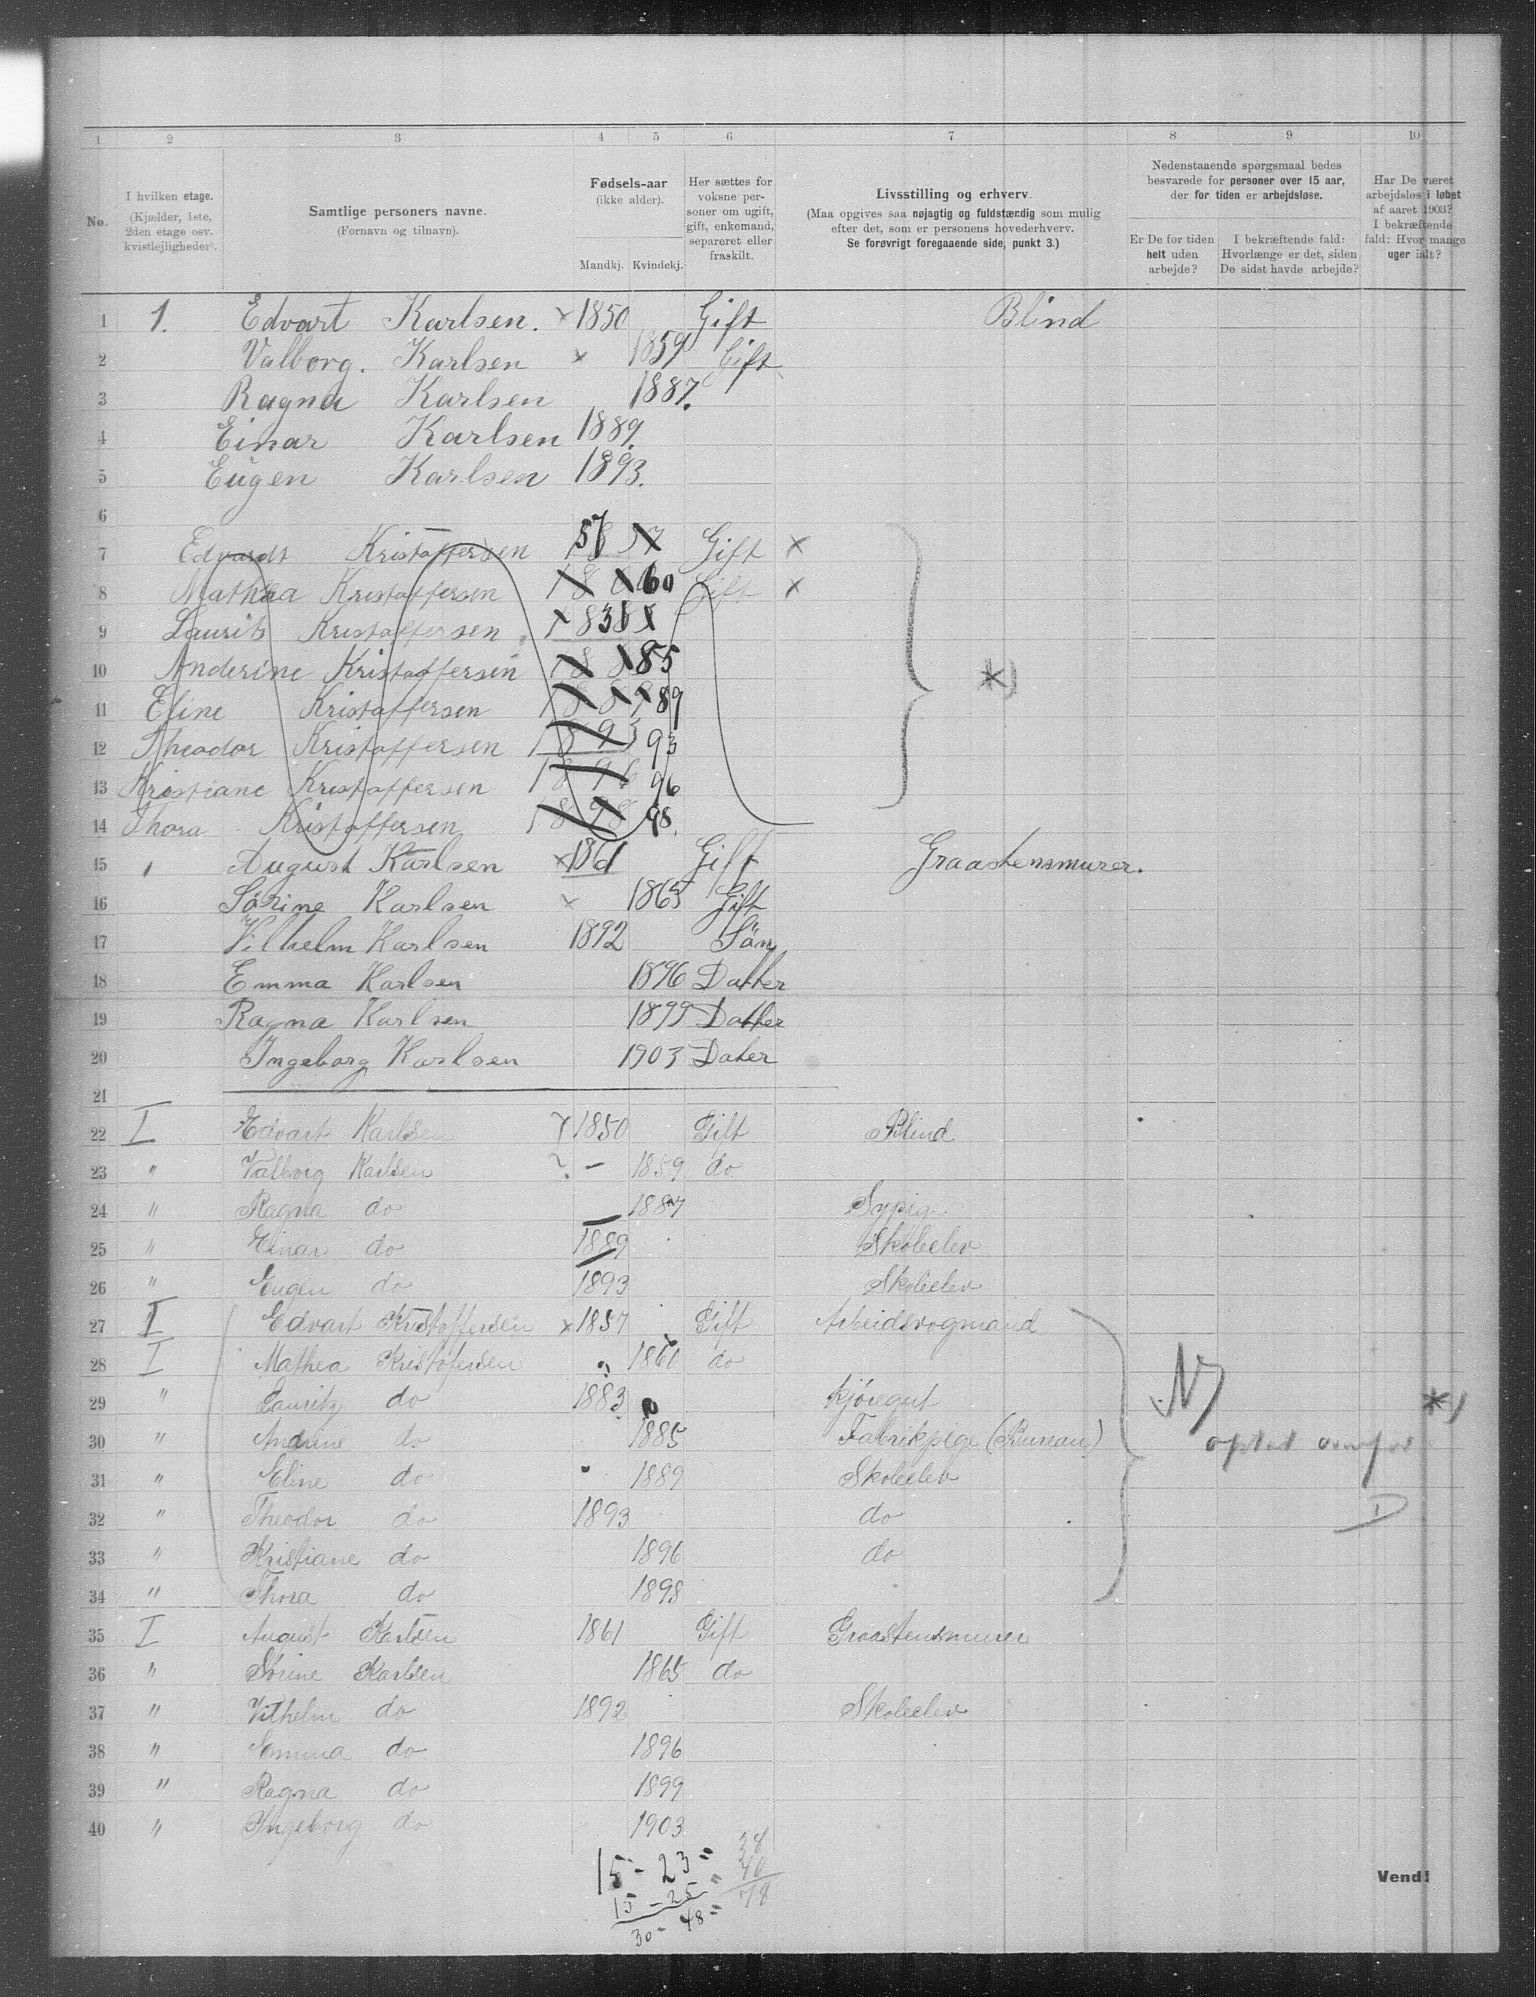 1 2 3 4 5 6 7 8 9 10
No.
I hvilken etage.
(Kjælder, 1ste,
2den etage osv.
kvistlejligheder).
Samtlige personers navne.
(Fornavn og tilnavn).
Fødsels-aar
(ikke alder).
Mandkj. Kvindekj.
Her sættes for
voksne per-
soner om ugift,
gift, enkemand,
separeret eller
fraskilt.
Livsstilling og erhverv.
(Maa opgives saa nøjagtig og fuldstærdig som mulig
efter det, som er personens hovederhverv.
Se forøvrigt foregaaende side, punkt 3.)
Nedenstaaende spørgsmaal bedes
besvarede for personer over 15 aar,
der for tiden er arbejdsløse.
Er De for tiden
helt uden
arbejde?
I bekræftende fald:
Hvorlænge er det, siden
De sidst havde arbejde?
Har De været
arbejdsløs i løbet
af aaret 1903?
I bekræftende
fald: Hvor mange
uger ialt?
1 1. Edvart Karlsen. × 1850 Gift Blind
2 Valborg. Karlsen × 1859 Gift
3 Ragna Karlsen 1887.
4 Einar Karlsen 1889.
5 Eugen Karlsen 1893.
6
7 Edvardt Kristoffersen 57 Gift ×
8 Mathea Kristoffersen 60 Gift ×
9 Laurits Kristoffersen 83
10 Anderine Kristaffersen 85
11 Eline Kristaffersen 89
12 Theodor Kristaffersen 1893 93
13 Kristiane Kristaffersen 1896 96
14 Thora Kristaffersen 1898 98.
*)
15 August Karlsen × 1861 Gift Graastensmurer.
16 Sörine Karlsen × 1865 Gift
17 Vilhelm Karlsen 1892 Sön
18 Emma Karlsen 1896 Datter
19 Ragna Karlsen 1899 Datter
20 Ingeborg Karlsen 1903 Dater
21
22 I Edvart Karlsen 1850 Gift Blind
23 " Valborg Karlsen ? - 1859 do
24 " Ragna do 1887 Sypige
25 " Einar do 1889 Skoleelev
26 " Eugen do 1893 Skoleelev
27 I Edvart Kristoffersen × 1857 Gift Arbeidsvogmand
28 I Mathea Kristofersen 1860 do
29 " Lauritz do 1883 Kjöregut *)
30 " Andrine do 1885 Fabrikpige (Bureau)
31 " Eline do 1889 Skoleelev
32 " Theodor do 1893 do
33 " Kristiane do 1896 do
34 " Thora do 1898
35 I August Karlsen 1861 Gift Graastensmurer
36 " Sörine Karlsen 1865 do
37 " Vilhelm do 1892 Skoleelev
38 " Emma do 1896
39 " Ragna do 1899
40 " Ingeborg do 1903
15 - 23 = 38
15 - 25 = 40
30 = 48 = 78
Vend!